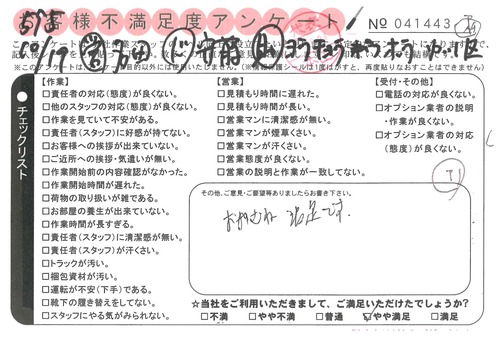 お客様不満足度アンケート
No 041443
10/9
※このアンケートは
チェックリスト
【作業】
□責任者の対応(態度)が良くない。
□他のスタッフの対応(態度)が良くない。
□作業を見ていて不安がある。
□責任者(スタッフ)に好感が持てない。
□お客様への挨拶が出来ていない。
□ご近所への挨拶・気遣いが無い。
□作業開始前の内容確認がなかった。
□作業開始時間が遅れた。
□荷物の取り扱いが雑である。
□お部屋の養生が出来ていない。
□作業時間が長すぎる。
□責任者(スタッフ)に清潔感が無い。
□責任者(スタッフ)が汗くさい。
□トラックが汚い。
□梱包資材が汚い。
□運転が不安(下手)である。
□靴下の履き替えをしてない。
□スタッフにやる気がみられない。
【営業】
□見積もり時間に遅れた。
□見積もり時間が長い。
□営業マンに清潔感が無い。
□営業マンが煙草くさい。
□営業マンが汗くさい。
□営業態度が良くない。
□営業の説明と作業が一致してない。
【受付・その他】
□電話の対応が良くない。
□オプション業者の説明
・作業が良くない。
□オプション業者の対応
(態度)が良くない。
その他、ご意見・ご要望等ありましたらお書き下さい。
おおむね 満足です。
☆当社をご利用いただきまして、ご満足いただけたでしょうか?
□不満 □やや不満 □普通 □やや満足 □満足